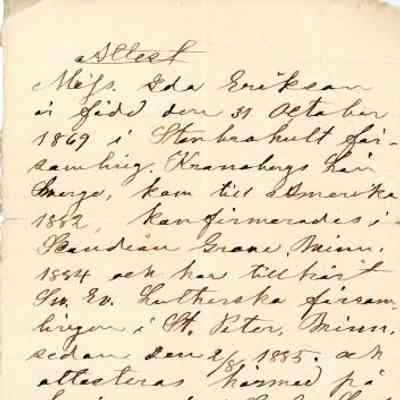 Attest
Miss. Ida Erikson
är född den 31 October
1869 i Stenbrohult för-
samling, Kronobergs län
Sverge, kom till Amerika
1882, konfirmerades i
Scandian Grove, Minn.
1884 och har tillhört
Sv. Ev. Lutherska försam-
lingen i St. Peter, Minn.
sedan den 2/8 1885. och
attesteras härmed på